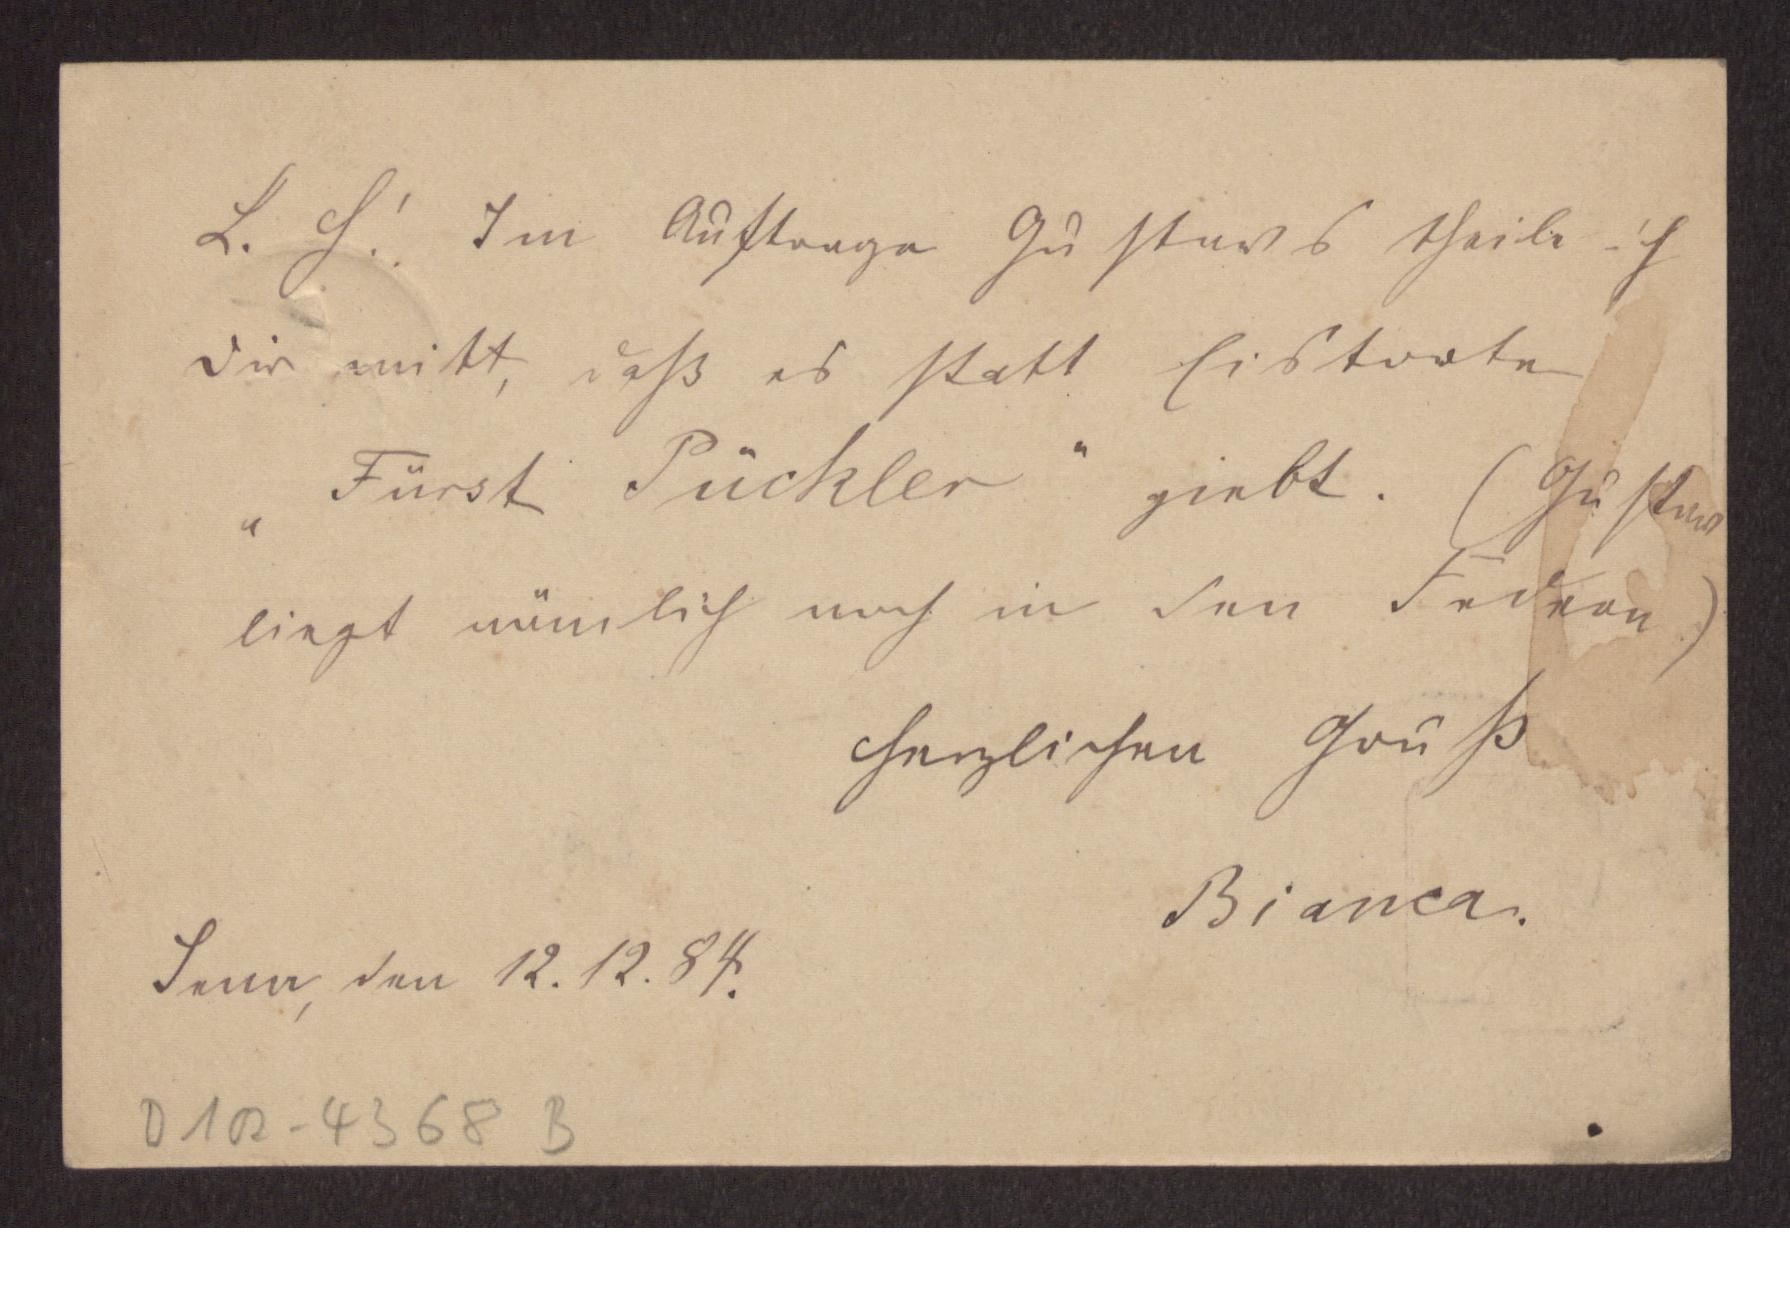 L. H! Im Auftrage Gustavs theile ich
Dir mitt, daß es statt Eistorte
„Fürst Pückler“ giebt. (Gustav
liegt nämlich noch in den Federn)
Herzlichen Gruß
Bianca.
Jena, den 12.12.84.
D 102-4368 B